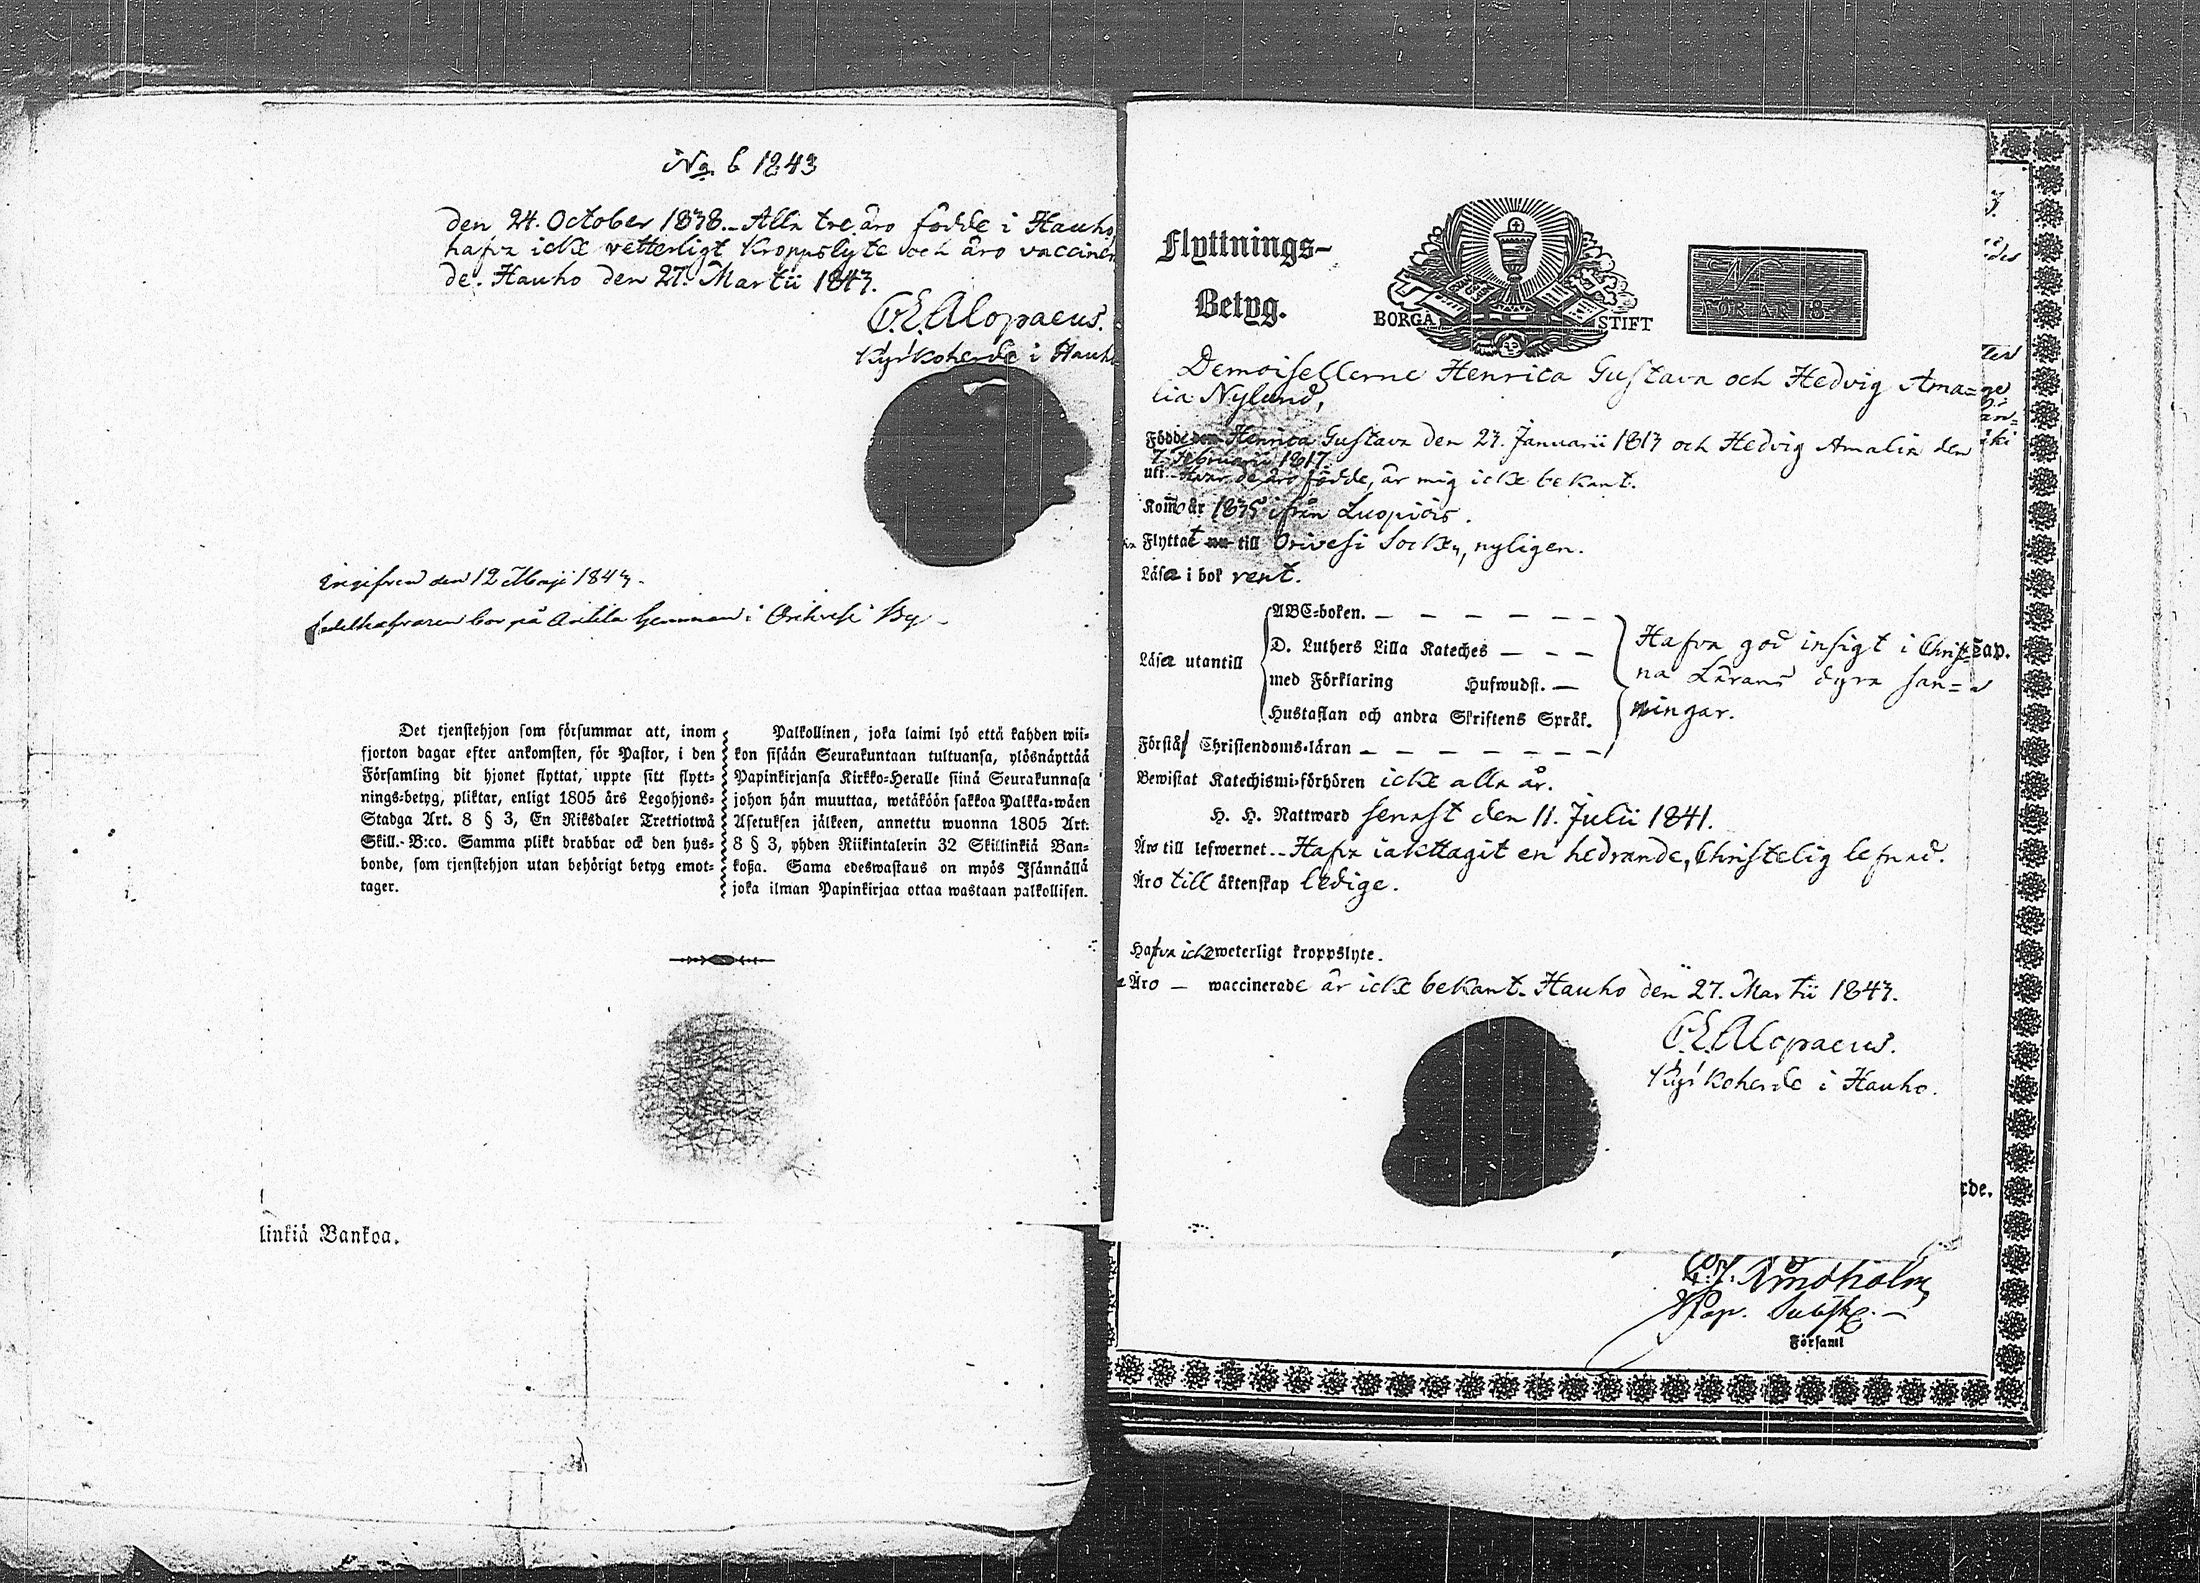 No. 6 1843
den 24. October 1838. Alla tre äro födde i Hauho
hafva icke vetterligt Kroppslyte och äro vaccinera-
de. Hauho den 27. Martii 1843.
Alopaeus.
Kyrkoherde i Hauho
den 12 Maji 1843.
bor på Anttila hemman i Orihvesi By
Det tjenstehjon som försummar att, inom
fjorton dagar efter ankomsten, för Pastor, i den
Församling dit hjonet flyttat, uppte sitt flytt-
nings-betyg, pliktar, enligt 1805 års Legohjons-
Stadga Art. 8 § 3, En Riksdaler Trettiotwå
Skill. B:co. Samma plikt drabbar ock den hus-
bonde, som tjenstehjon utan behörigt betyg emot-
tager.
Palkollinen, joka laimi lyö että kahden wii-
kon sisään Seurakuntaan tultuansa, ylösnäyttää
Papinkirjansa Kirkko-Heralle siinä Seurakunnasa
johon hän muuttaa, wetäköön sakkoa Palkka-wäen
Asetuksen jälkeen, annettu wuonna 1805 Art.
8 § 3, yhden Riikintalerin 32 Skillinkiä Ban-
koßa. Sama edeswastaus on myös Isännällä
joka ilman Papinkirjaa ottaa wastaan palkollisen.
linkiä Bankoa.
Flyttnings-
Betyg.
BORGÅ STIFT
FÖR ÅR 18
Demoisellerne Henrica Gustava och Hedvig Ama=
lia Nylund,
Födde den Henrica Gustava den 27. Januarii 1813 och Hedvig Amalia den
7. Februarii 1817
uti Hvar de äro födde, är mig icke bekant.
Kom̅o år 1835 ifrån Luopiois.
Flyttat nu till Orivesi Sockn, nyligen.
Läsa i bok rent.
Läsa utantill
ABC-boken. — — — — — — —
D. Luthers Lilla Kateches — — —
med Förklaring Hufwudst. —
Hustaflan och andra Skriftens Språk.
Hafva god insigt i Christ-
na Lärans dyra san=
ningar.
Förstå Christendoms-läran — — — — — — —
Bewistat Katechismi-förhören icke alla år.
H. H. Nattward senast den 11. Julii 1841.
Äro till lefwernet.. Hafva iakttagit en hedrande, Christelig lefnad.
Äro till äktenskap ledige.
Hafva icke weterligt kroppslyte.
Äro — waccinerade är icke bekant. Hauho den 27. Martii 1843.
Alopaeus.
Kyrkoherde i Hauho.
rde.
Lindholm
Församl